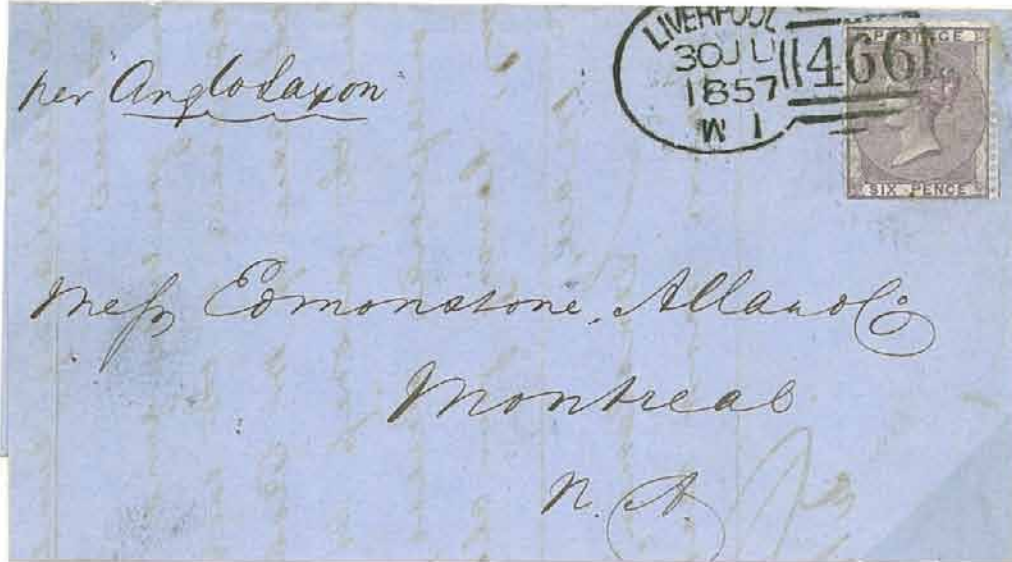 per "Anglo Saxon"
LIVERPOOL
30 JU
1857
W 1
466
POSTAGE
SIX PENCE
Messrs Edmonstone, Allan & Co
Montreal
N. A.